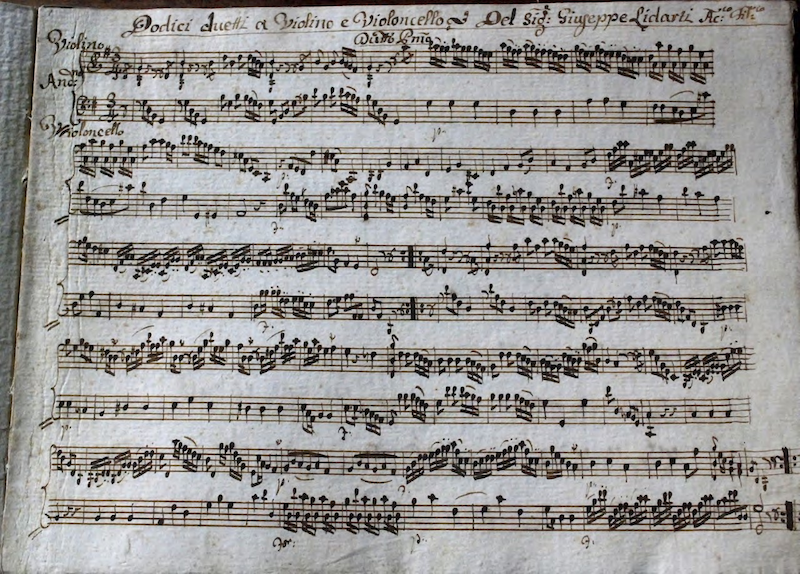 Dodici duetti a Violino e Violoncello Del Sig.r Giuseppe Lidarti Ac:co Fil:co
Violino
Duetto Pmo
And.no
Violoncello
p.
p.
f.
f.
p.
f.
f.
p.
f.
p.
for.
p.
f.